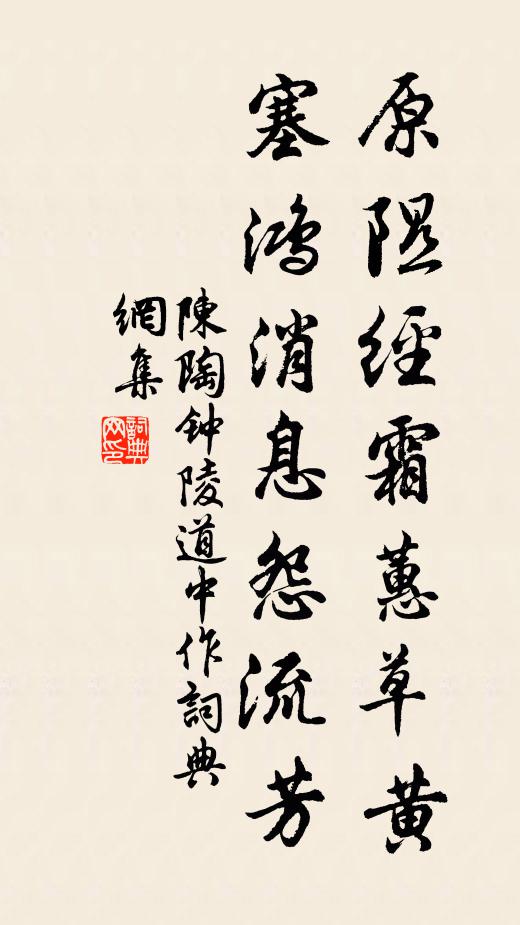 原隰經霜蕙草黃
塞鴻消息怨流芳
陳陶鈡陵道中作詞典
網集
詞典
网印